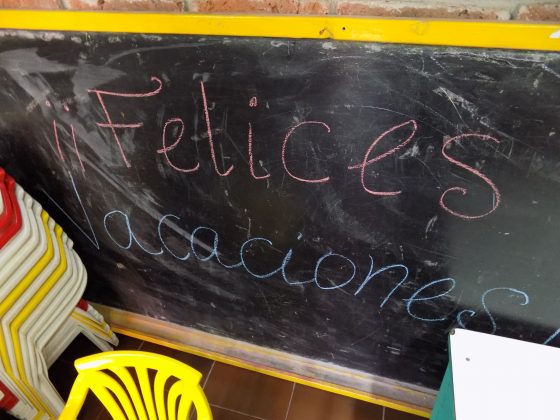 ¡¡Felices
Vacaciones!